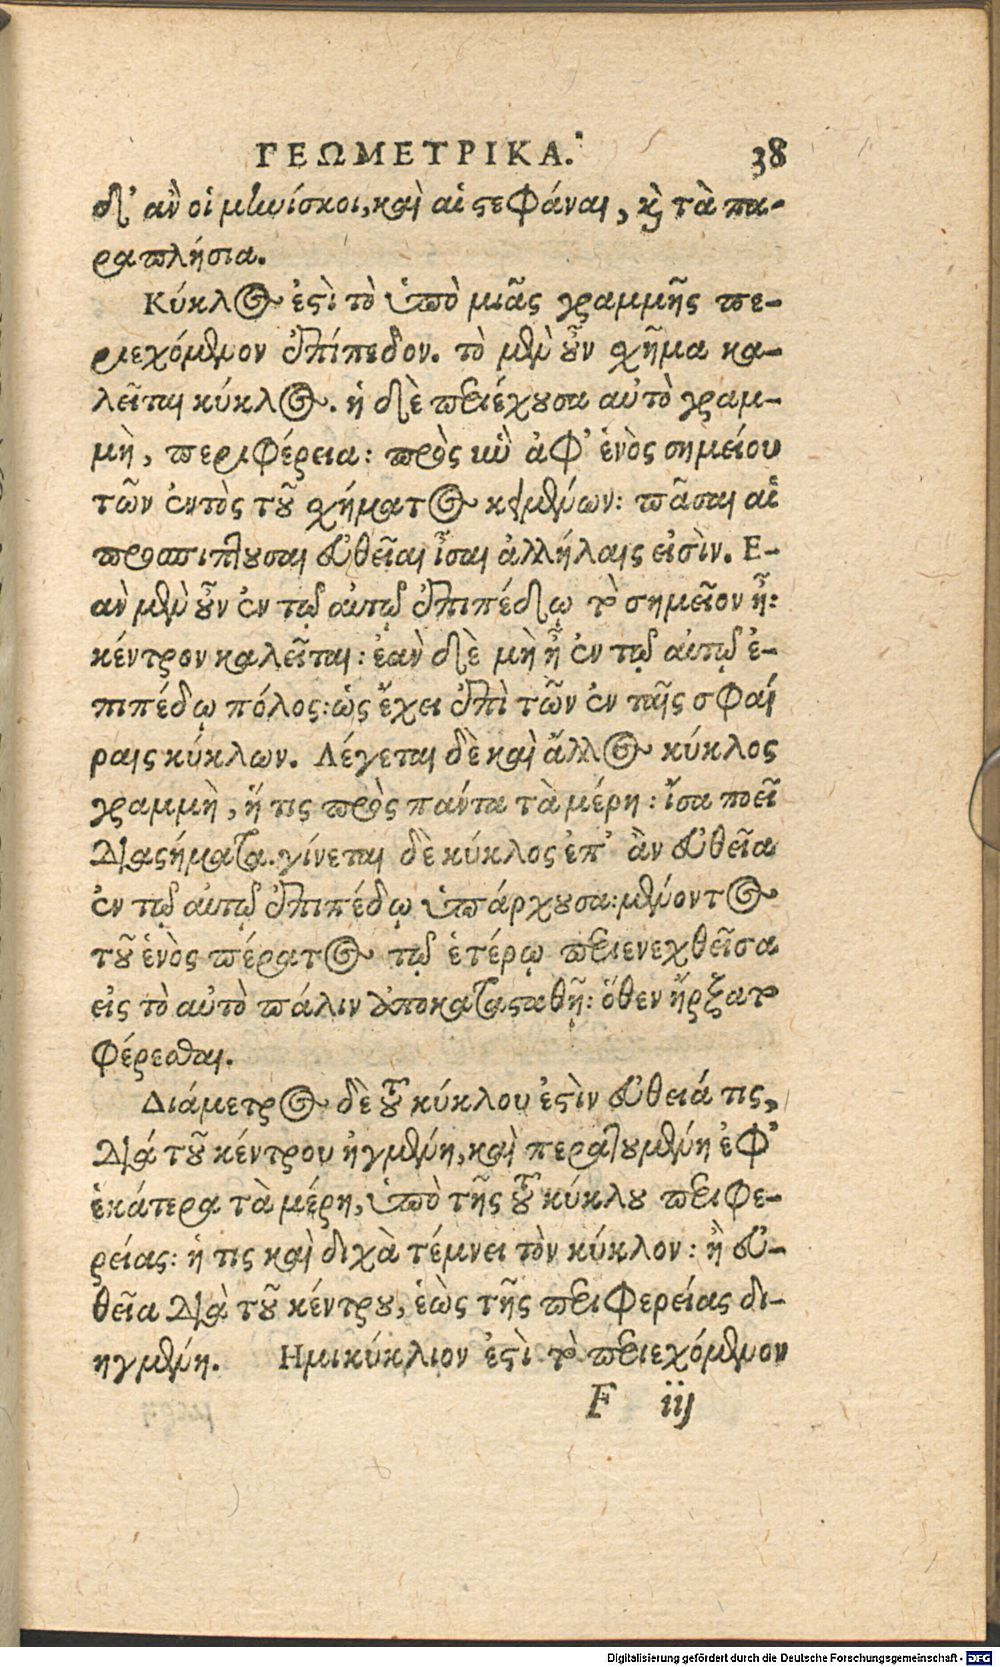 ΓΕΩΜΕΤΡΙΚΑ. 38
δ' ἂν οἱ μηνίσκοι, καὶ αἱ στεφάναι, καὶ τὰ πα-
ραπλήσια.
Κύκλος ἐστὶ τὸ ὑπὸ μιᾶς γραμμῆς πε-
ριεχόμενον ἐπίπεδον. τὸ μὲν οὖν σχῆμα κα-
λεῖται κύκλος. ἡ δὲ περιέχουσα αὐτὸ γραμ-
μὴ, περιφέρεια: πρὸς ἣν ἀφ' ἑνὸς σημείου
τῶν ἐντὸς τοῦ σχήματος κειμένων: πᾶσαι αἱ
προσπίπτουσαι εὐθεῖαι ἴσαι ἀλλήλαις εἰσὶν. Ε-
ὰν μὲν οὖν ἐν τῷ αὐτῷ ἐπιπέδῳ τὸ σημεῖον ᾖ:
κέντρον καλεῖται: ἐὰν δὲ μὴ ᾖ ἐν τῷ αὐτῷ ἐ-
πιπέδῳ πόλος: ὡς ἔχει ἐπὶ τῶν ἐν ταῖς σφαί
ραις κύκλων. Λέγεται δὲ καὶ ἄλλος κύκλος
γραμμὴ, ἥ τις πρὸς πάντα τὰ μέρη: ἴσα ποεῖ
διαστήματα. γίνεται δὲ κύκλος ἐπ' ἂν εὐθεῖα
ἐν τῷ αὐτῷ ἐπιπέδῳ ὑπάρχουσα: μένοντος
τοῦ ἑνὸς πέρατος τῷ ἑτέρῳ περιενεχθεῖσα
εἰς τὸ αὐτὸ πάλιν ἀποκατασταθῇ: ὅθεν ἤρξατο
φέρεσθαι.
Διάμετρος δὲ τοῦ κύκλου ἐστὶν εὐθειά τις,
διά τοῦ κέντρου ἠγμένη, καὶ περατουμένη ἐφ'
ἑκάτερα τὰ μέρη, ὑπὸ τῆς τοῦ κύκλου περιφε-
ρείας: ἡ τις καὶ διχὰ τέμνει τὸν κύκλον: ἢ εὐ-
θεῖα διὰ τοῦ κέντρου, ἑὼς τῆς περιφερείας δι-
ηγμένη. Ημικύκλιον ἐστὶ τὸ περιεχόμενον
F iij
Digitalisierung gefördert durch die Deutsche Forschungsgemeinschaft - DFG